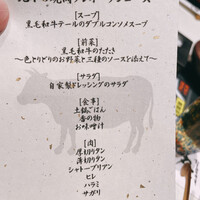 [スープ]
黒毛和牛テールのダブルコンソメスープ
[前菜]
黒毛和牛のたたき
～色とりどりのお野菜と三種のソースを添えて～
[サラダ]
自家製ドレッシングのサラダ
[食事]
土鍋ごはん
香の物
お味噌汁
[肉]
厚切りタン
薄切りタン
シャトーブリアン
ヒレ
ハラミ
サガリ